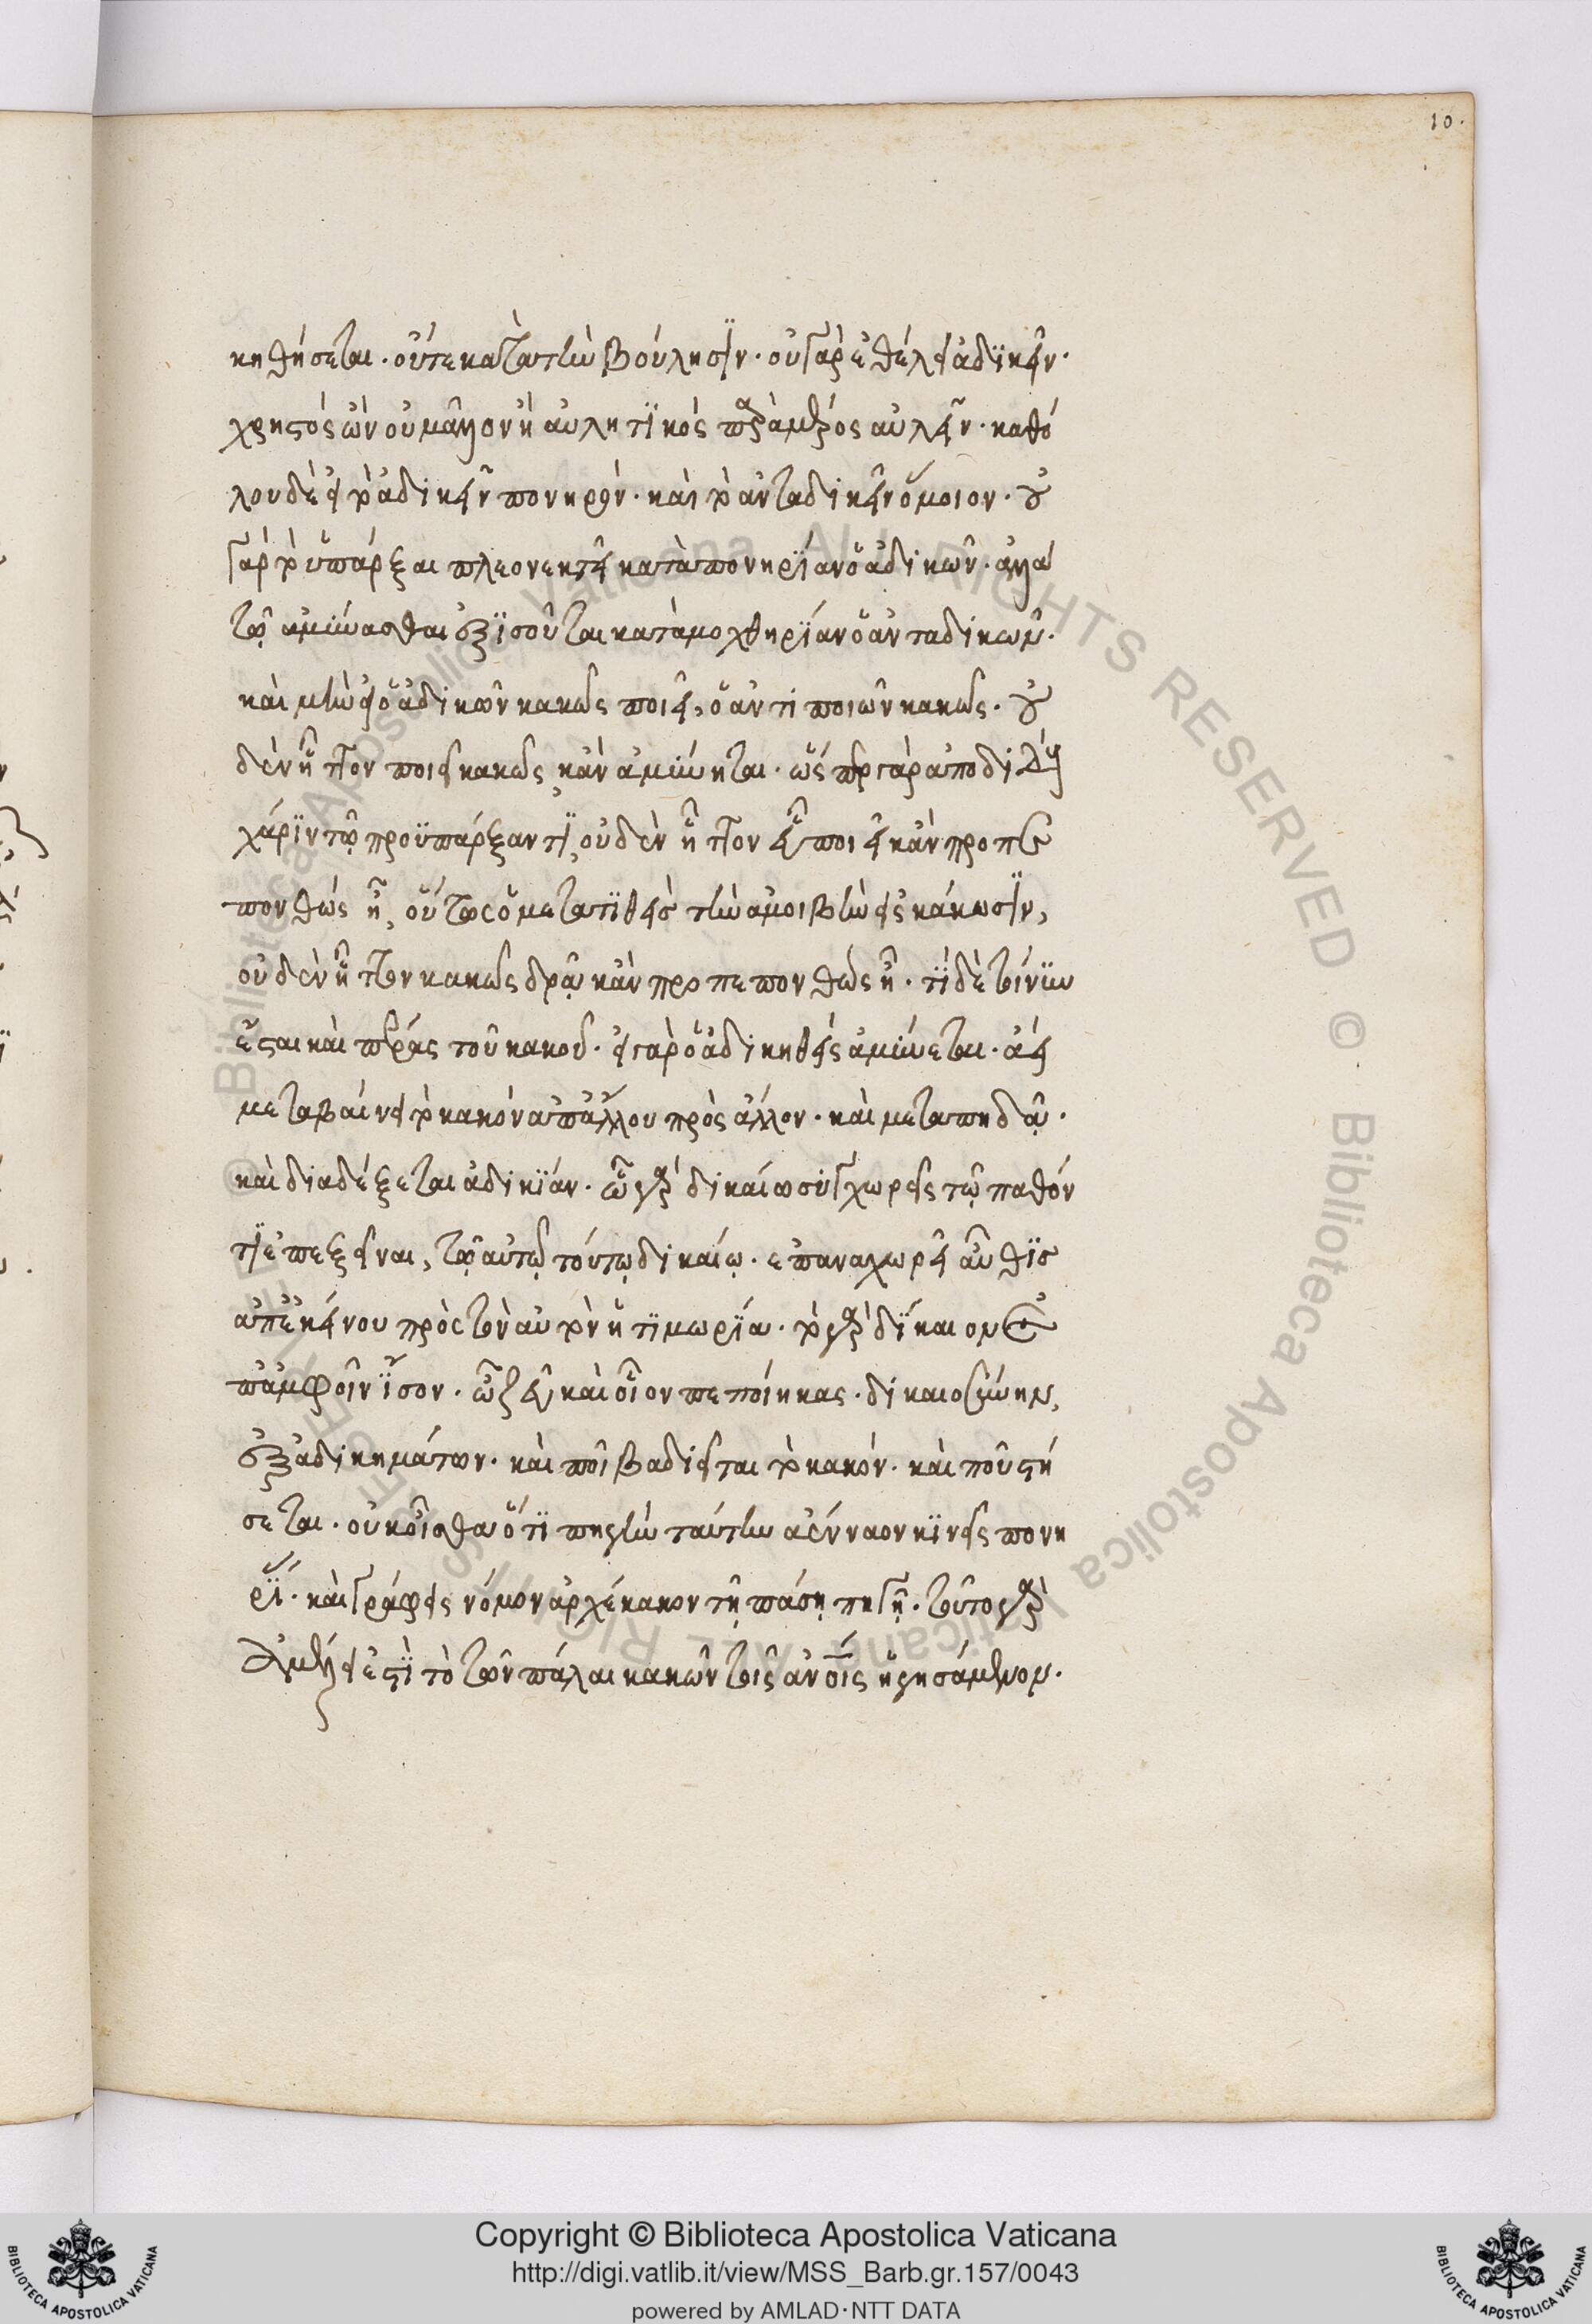 10.
κηθήσεται. οὔτε κατὰ τὴν βούλησϊν. οὐ γὰρ ἐθέλει ἀδϊκεῖν.
χρηστός ὢν οὐ μᾶλλον ἢ αὐλητϊκός παρὰ μέρος αὐλεῖν. καθό
λου δὲ εἰ τὸ ἀδικεῖν πονηρόν. καὶ τὸ ἀνταδικεῖν ὅμοιον. οὐ
γὰρ τῷ ὑπάρξαι πλεονεκτεῖ κατὰ πονηρϊάν ὁ ἀδικῶν. ἀλλὰ
τῷ ἀμύνασθαι ἐξϊσοῦται κατὰ μοχθηρϊάν ὁ ἀνταδικων.
καὶ μὴν εἰ ὁ ἀδικῶν κακῶς ποιεῖ, ὁ ἀντιποιῶν κακῶς. οὐ
δὲν ἧττον ποιεῖ κακῶς, κἂν ἀμύνηται. ὥσπερ γὰρ ὁ ἀποδιδοὺς
χάρϊν τῷ προϋπάρξαντϊ, οὐδὲν ἧττον εὖ ποιεῖ κἂν προπε
πονθώς ᾖ, οὕτως ὁ μετατϊθεὶς τὴν ἀμοιβὴν εἰς κάκωσϊν,
οὐδὲν ἧττον κακῶς δρᾷ κἂν προπεπονθὼς ᾖ. τϊ δὲ γίνϋν
ἔσται καὶ πέρας τοῦ κακοῦ. εἰ γὰρ ὁ ἀδικηθεὶς ἀμύνεται. ἀεὶ
μεταβαίνει τὸ κακόν ἀπ' ἄλλου πρὸς ἄλλον. καὶ μεταπηδᾷ.
καὶ διαδέξεται ἀδικϊάν. ὧ γὰρ δικαίῳ συγχωρεῖς τῷ παθόν
τϊ ἐπεξεῖναι, τῷ αὐτῷ τούτῳ δικαίῳ. ἐπαναχωρεῖ αὖθϊς
ἀπ' ἐκείνου πρὸς τὸν αὐτὸν ἡ τϊμωρϊα. τὸ γὰρ δϊκαιον ἐ
π' ἀμφοῖν ϊσον. ὦ ζεῦ καὶ οἷον πεποίηκας. δικαιοσύνην,
ἐξ ἀδικημάτων. καὶ ποῖ βαδιεῖται τὸ κακόν. καὶ ποῦ στή
σεται. οὐκ οἶσθα ὅτϊ πηγὴν ταύτην ἀένναον κϊνεῖς πονη
ρϊ. καὶ γράφεις νόμον ἀρχέκακον τῇ πάσῃ πηγῇ. τοῦτο γὰρ
ἀμέλει ἐστϊ τὸ τῶν πάλαι κακῶν τοῖς ἀνοις ἡγησάμενον.
Copyright © Biblioteca Apostolica Vaticana
http://digi.vatlib.it/view/MSS_Barb.gr.157/0043
powered by AMLAD·NTT DATA